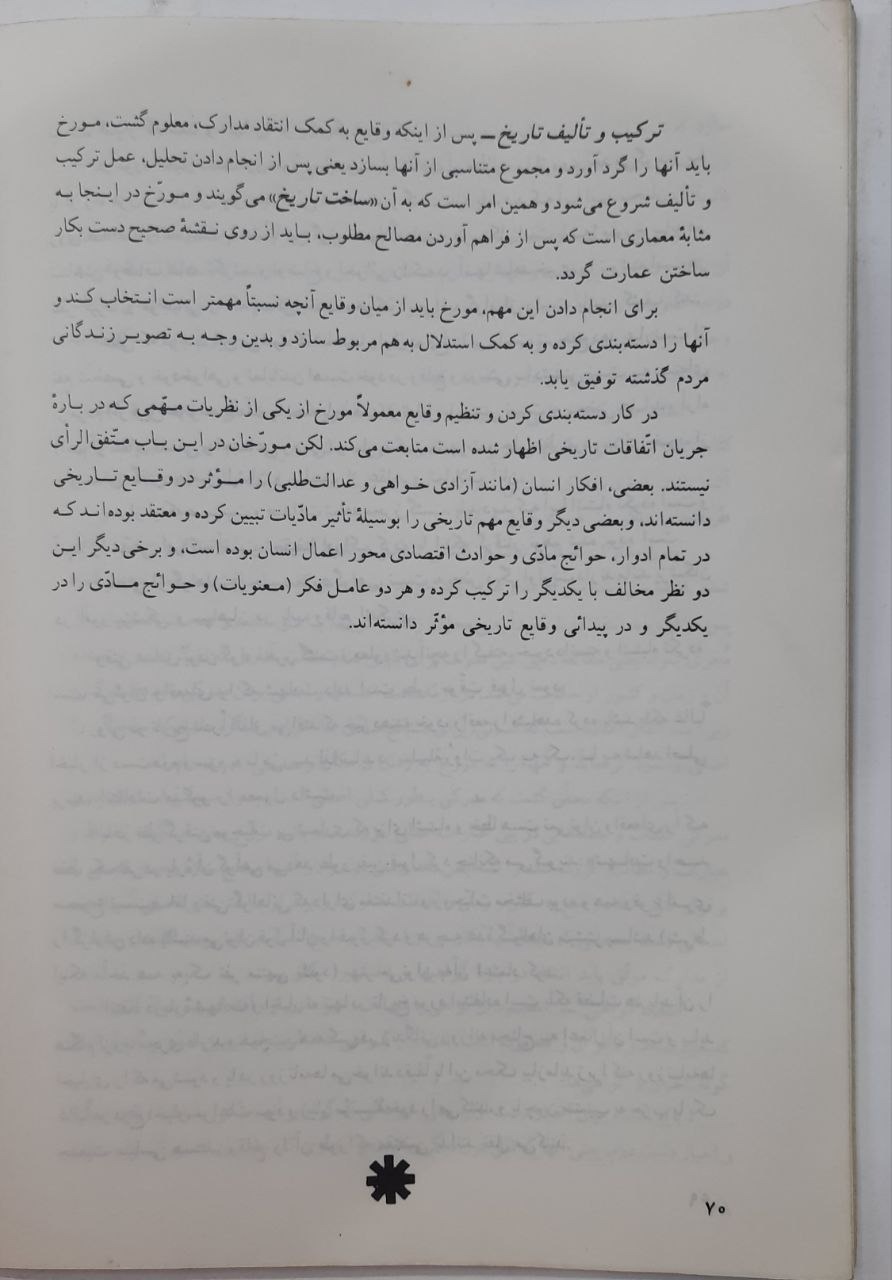 ترکیب و تألیف تاریخ ـــ پس از اینکه وقایع به کمک انتقاد مدارک، معلوم گشت، مورخ
باید آنها را گرد آورد و مجموع متناسبی از آنها بسازد یعنی پس از انجام دادن تحلیل، عمل ترکیب
و تألیف شروع می‌شود و همین امر است که به آن «ساخت تاریخ» می‌گویند و مورّخ در اینجا به
مثابهٔ معماری است که پس از فراهم آوردن مصالح مطلوب، باید از روی نقشهٔ صحیح دست بکار
ساختن عمارت گردد.
برای انجام دادن این مهم، مورخ باید از میان وقایع آنچه نسبتاً مهمتر است انتخاب کند و
آنها را دسته‌بندی کرده و به کمک استدلال به هم مربوط سازد و بدین وجه به تصویر زندگانی
مردم گذشته توفیق یابد.
در کار دسته‌بندی کردن و تنظیم وقایع معمولاً مورخ از یکی از نظریات مهّمی که در بارهٔ
جریان اتّفاقات تاریخی اظهار شده است متابعت می‌کند. لکن مورّخان در این باب متّفق‌الرأی
نیستند. بعضی، افکار انسان (مانند آزادی خواهی و عدالت‌طلبی) را مؤثر در وقایع تاریخی
دانسته‌اند، وبعضی دیگر وقایع مهم تاریخی را بوسیلهٔ تأثیر مادّیات تبیین کرده و معتقد بوده‌اند که
در تمام ادوار، حوائج مادّی و حوادث اقتصادی محور اعمال انسان بوده است، و برخی دیگر این
دو نظر مخالف با یکدیگر را ترکیب کرده و هر دو عامل فکر (معنویات) و حوائج مادّی را در
یکدیگر و در پیدائی وقایع تاریخی مؤثّر دانسته‌اند.
۷۰